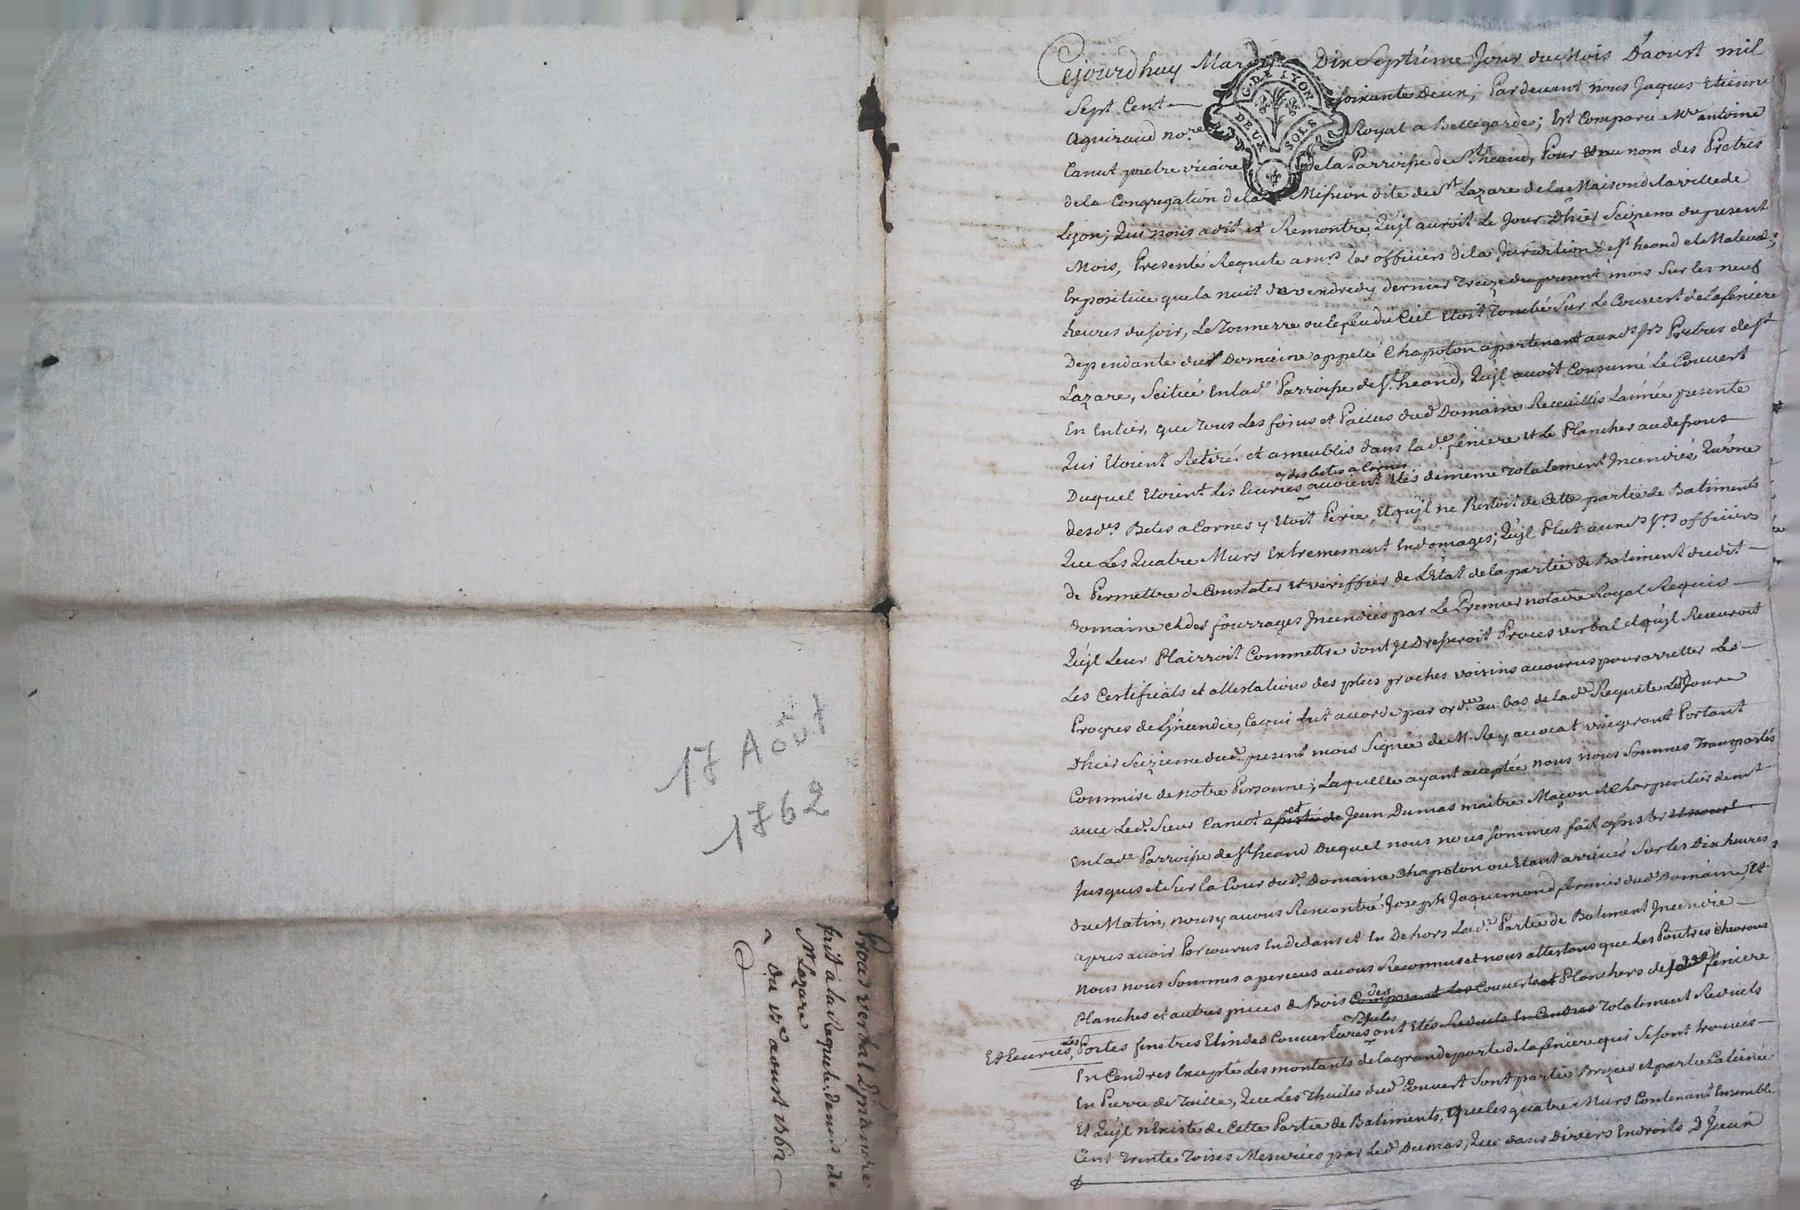 17 Août
1762
Procès verbal d'jncendie
fait à la Requete de mrs de
St Lazare
du 17e aoust 1762
Cejourdhuy Mardy Dix Septieme Jour du Mois D'aoust mil
Sept Cent soixante deux; Pardevant nous Jaques Etienne
Aguiraud nore Royal a Bellegarde; Est Comparu Mre antoine
Canut pretre vicaire de la Parroisse de St. heand, Pour et au nom des Prêtres
de la Congregation de la Mission dite de St Lazare de la Maison de la ville de
Lyon; Qui nous a dit et Remontré, Qu'jl auroit Le Jour D'hier Seizieme du present
Mois, Presenté Requete a mrs les officiers de la Jurisdition de St heand et Maleval;
Expositive que la nuit du vendredy dernier treize du present mois Sur les neuf
heures du soir, Le Tonnerre ou le feu du Ciel Etoit Tombé Sur Le Couvert de la feniere
Dependante du Domaine appellé Chapoton apartenant auxds srs Pretres de St
Lazare, Scitué En lad. Parroisse de St. heand, Qu'jl avoit Consumé Le Couvert
En Entier, que tous Les foins et Pailles dud Domaine Receuillis L'année presente
Qui Etoient Retirés et ameublis dans lad. feniere et Le Plancher au dessous
Duquel Etoient Les Ecuries des betes a Cornes avoient Etés de même totalement Jncendiés Qu'une
desds. Betes a Cornes y Etoit Perie, et qu'jl ne Restoit de Cette partie de Batiments
Que Les Quatre Murs Extremement Endomagés; Qu'jl Plut auxds srs officiers
de Permettre de Constater et veriffier de L'Etat de la partie de Batiment dudit
Domaine et des fourrages Jncendiés par Le Premier notaire Royal Requis
Qu'jl Leur Plairroit Commettre dont jl Dresseroit Proces verbal et qu'jl Recevroit
Les Certificats et attestations des plus proches voisins accourus pour arretter Les
Progres de L'jncendie, Ce qui fut accordé par orde. au bas de lad. Requete Led Jour
D'hier Seizieme dud. present mois Signée de M. Rey avocat vicegerant Portant
Commise de notre Personne; Laquelle ayant acceptée nous nous Sommes Transportés
avec Led. Sieur Canut et Jean Dumas maitre Maçon et Charpentier demt
En lad. Parroisse de St heand Duquel nous nous sommes fait assister
Jusques et Sur la Cour dud. Domaine Chapoton ou Etant arrivés Sur les Dix heures
du Matin, nous y avons Rencontré Joseph Jaquemond fermier dud Domaine, Et
apres avoir Parcourus En dedans et En Dehors Lad. Partie de Batiment Jncendié
nous nous Sommes aperceus avons Reconnus et nous attestons que Les Poutres Chevrons
Planches et autres pieces de Bois des Couverts et Planchers de feniere
Et Ecuries, Les Portes fenetres Et Couvertures ont Etés totalement Reduits
En Cendres Excepté Les montants de la grande porte de la feniere qui Se sont trouvés
En Pierre de Taille, Que Les Thuiles dud Couvert Sont partie Brizées et partie Calcinée
Et Qu'jl n'Existe de Cette Partie de Batiments, que les quatre Murs Contenant Ensemble
Cent Trente Toises Mesurées par Led Dumas, Que dans Divers Endroits D'jceux
G. DE LYON
DEUX SOLS